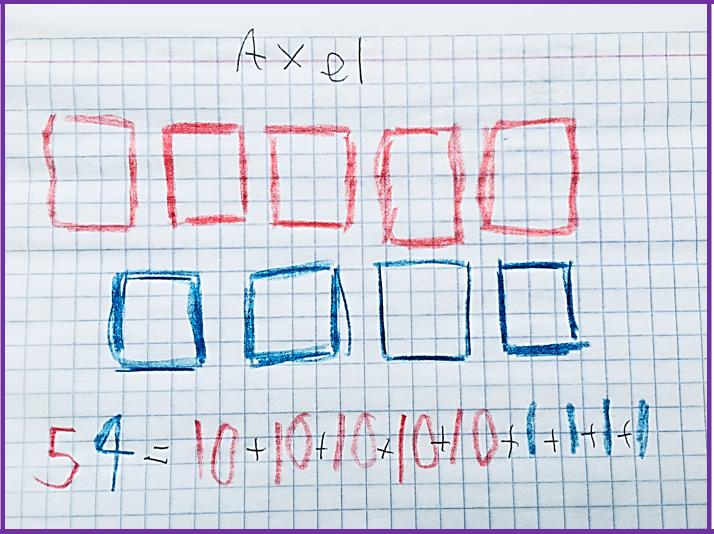 Axel
54 = 10+10+10+10+10+1+1+1+1